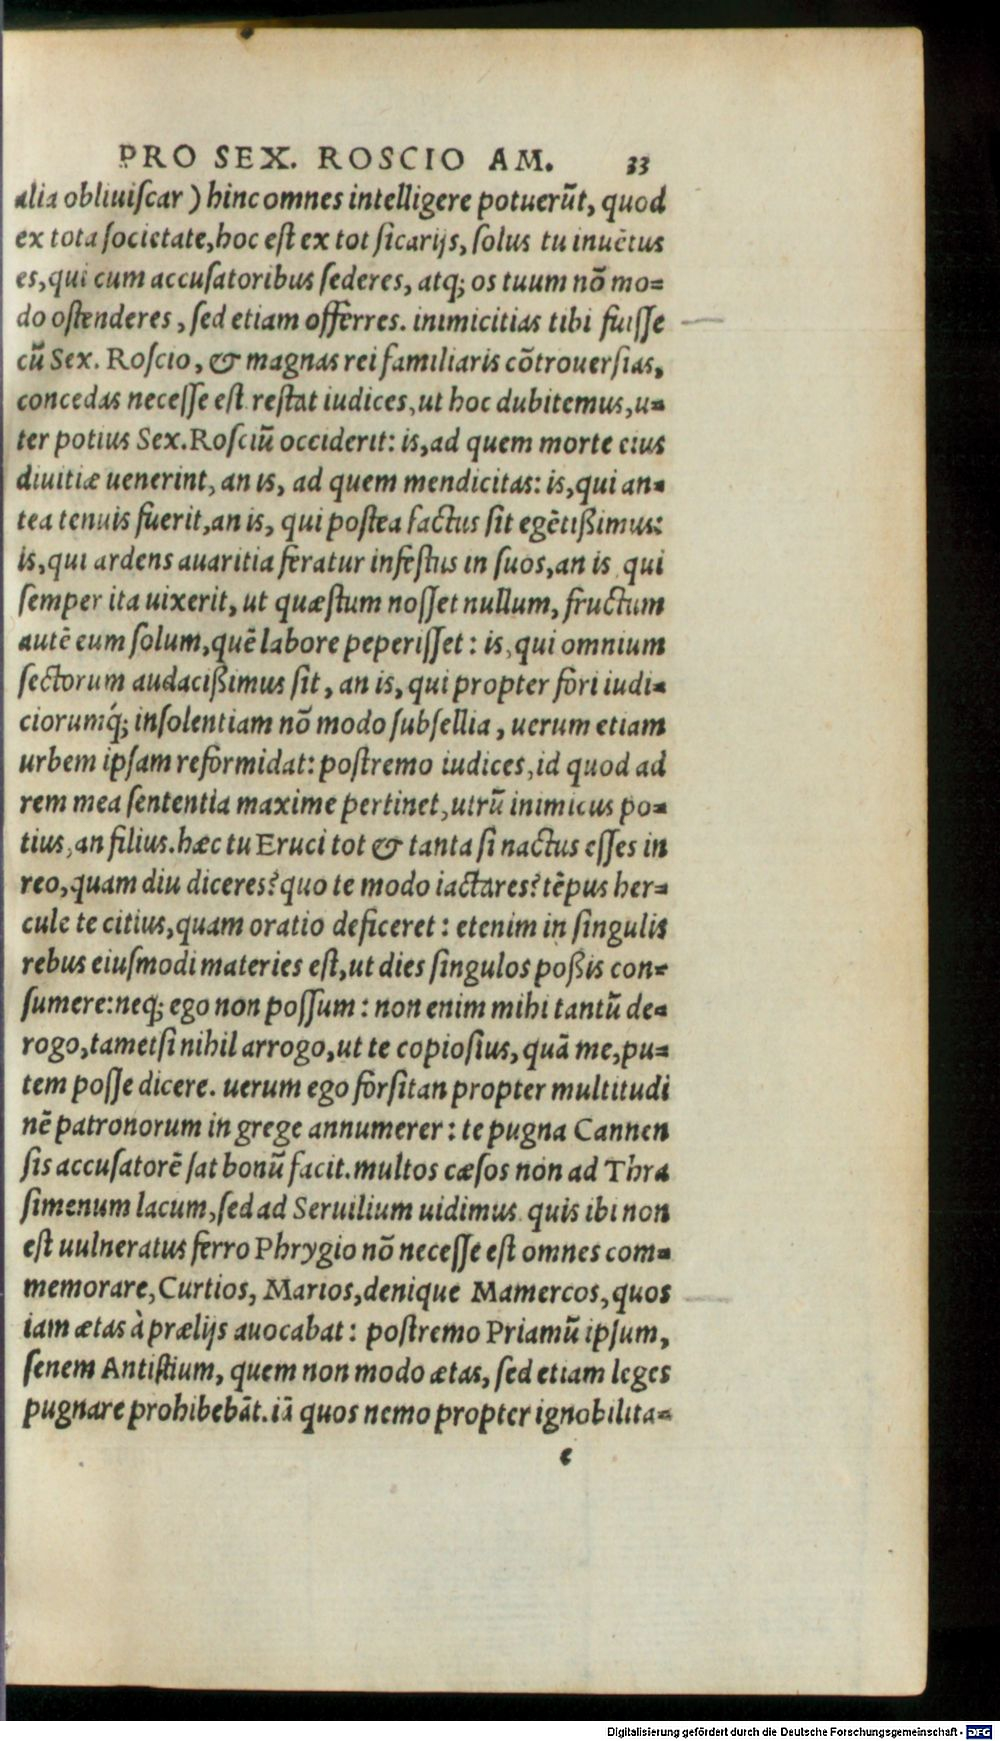 PRO SEX. ROSCIO AM. 33
alia obliuiſcar ) hinc omnes intelligere potuerũt, quod
ex tota ſocietate, hoc eſt ex tot ſicarijs, ſolus tu inuẽtus
es, qui cum accuſatoribus ſederes, atq; os tuum nõ mo=
do oſtenderes, ſed etiam offerres. inimicitias tibi fuiſſe
cũ Sex. Roſcio, & magnas rei familiaris cõtrouerſias,
concedas neceſſe eſt. reſtat iudices, ut hoc dubitemus, u=
ter potius Sex. Roſciũ occiderit: is, ad quem morte eius
diuitiæ uenerint, an is, ad quem mendicitas: is, qui an=
tea tenuis fuerit, an is, qui poſtea factus ſit egẽtißimus:
is, qui ardens auaritia feratur infeſtus in ſuos, an is qui
ſemper ita uixerit, ut quæſtum noſſet nullum, fructum
autẽ eum ſolum, quẽ labore peperiſſet: is, qui omnium
ſectorum audacißimus ſit, an is, qui propter fori iudi=
ciorumq́; inſolentiam nõ modo ſubſellia, uerum etiam
urbem ipſam reformidat: poſtremo iudices, id quod ad
rem mea ſententia maxime pertinet, utrũ inimicus po=
tius, an filius. hæc tu Eruci tot & tanta ſi nactus eſſes in
reo, quam diu diceres? quo te modo iactares? tẽpus her=
cule te citius, quam oratio deficeret: etenim in ſingulis
rebus eiuſmodi materies eſt, ut dies ſingulos poßis con=
ſumere: neq; ego non poſſum: non enim mihi tantũ de=
rogo, tametſi nihil arrogo, ut te copioſius, quã me, pu=
tem poſſe dicere. uerum ego forſitan propter multitudi
nẽ patronorum in grege annumerer: te pugna Cannen
ſis accuſatorẽ ſat bonũ facit. multos cæſos non ad Thra
ſimenum lacum, ſed ad Seruilium uidimus. quis ibi non
eſt uulneratus ferro Phrygio nõ neceſſe eſt omnes com=
memorare, Curtios, Marios, denique Mamercos, quos
iam ætas à prælijs auocabat: poſtremo Priamũ ipſum,
ſenem Antiſtium, quem non modo ætas, ſed etiam leges
pugnare prohibebãt. iã quos nemo propter ignobilita=
e
Digitalisierung gefördert durch die Deutsche Forschungsgemeinschaft - DFG